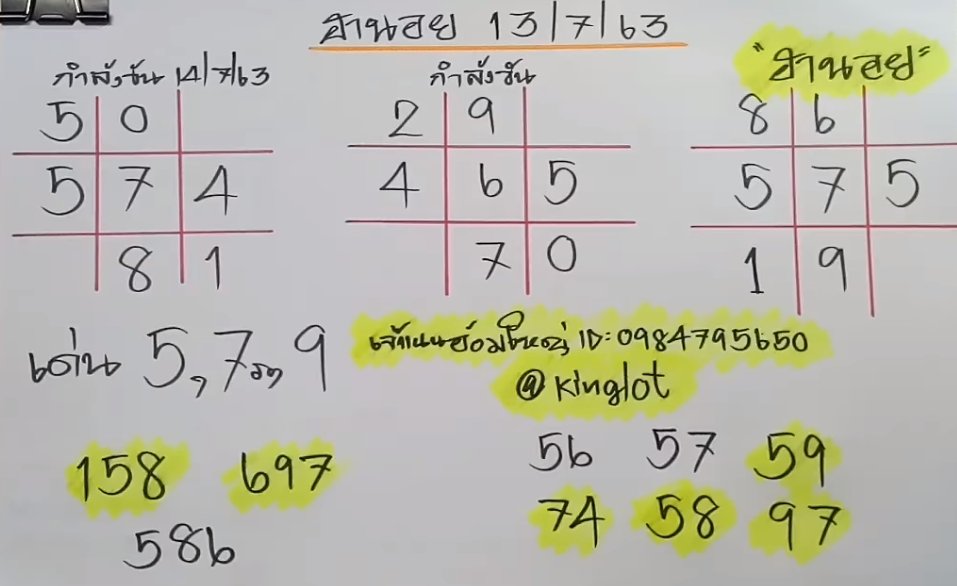 ฮานอย 13/7/63
กำลังวัน 14/7/63
5 0
5 7 4
8 1
กำลังวัน
2 9
4 6 5
7 0
"ฮานอย"
8 6
5 7 5
1 9
เด่น 5,7รอง9
158 697
586
ID:0984795650
@kinglot
56 57 59
74 58 97